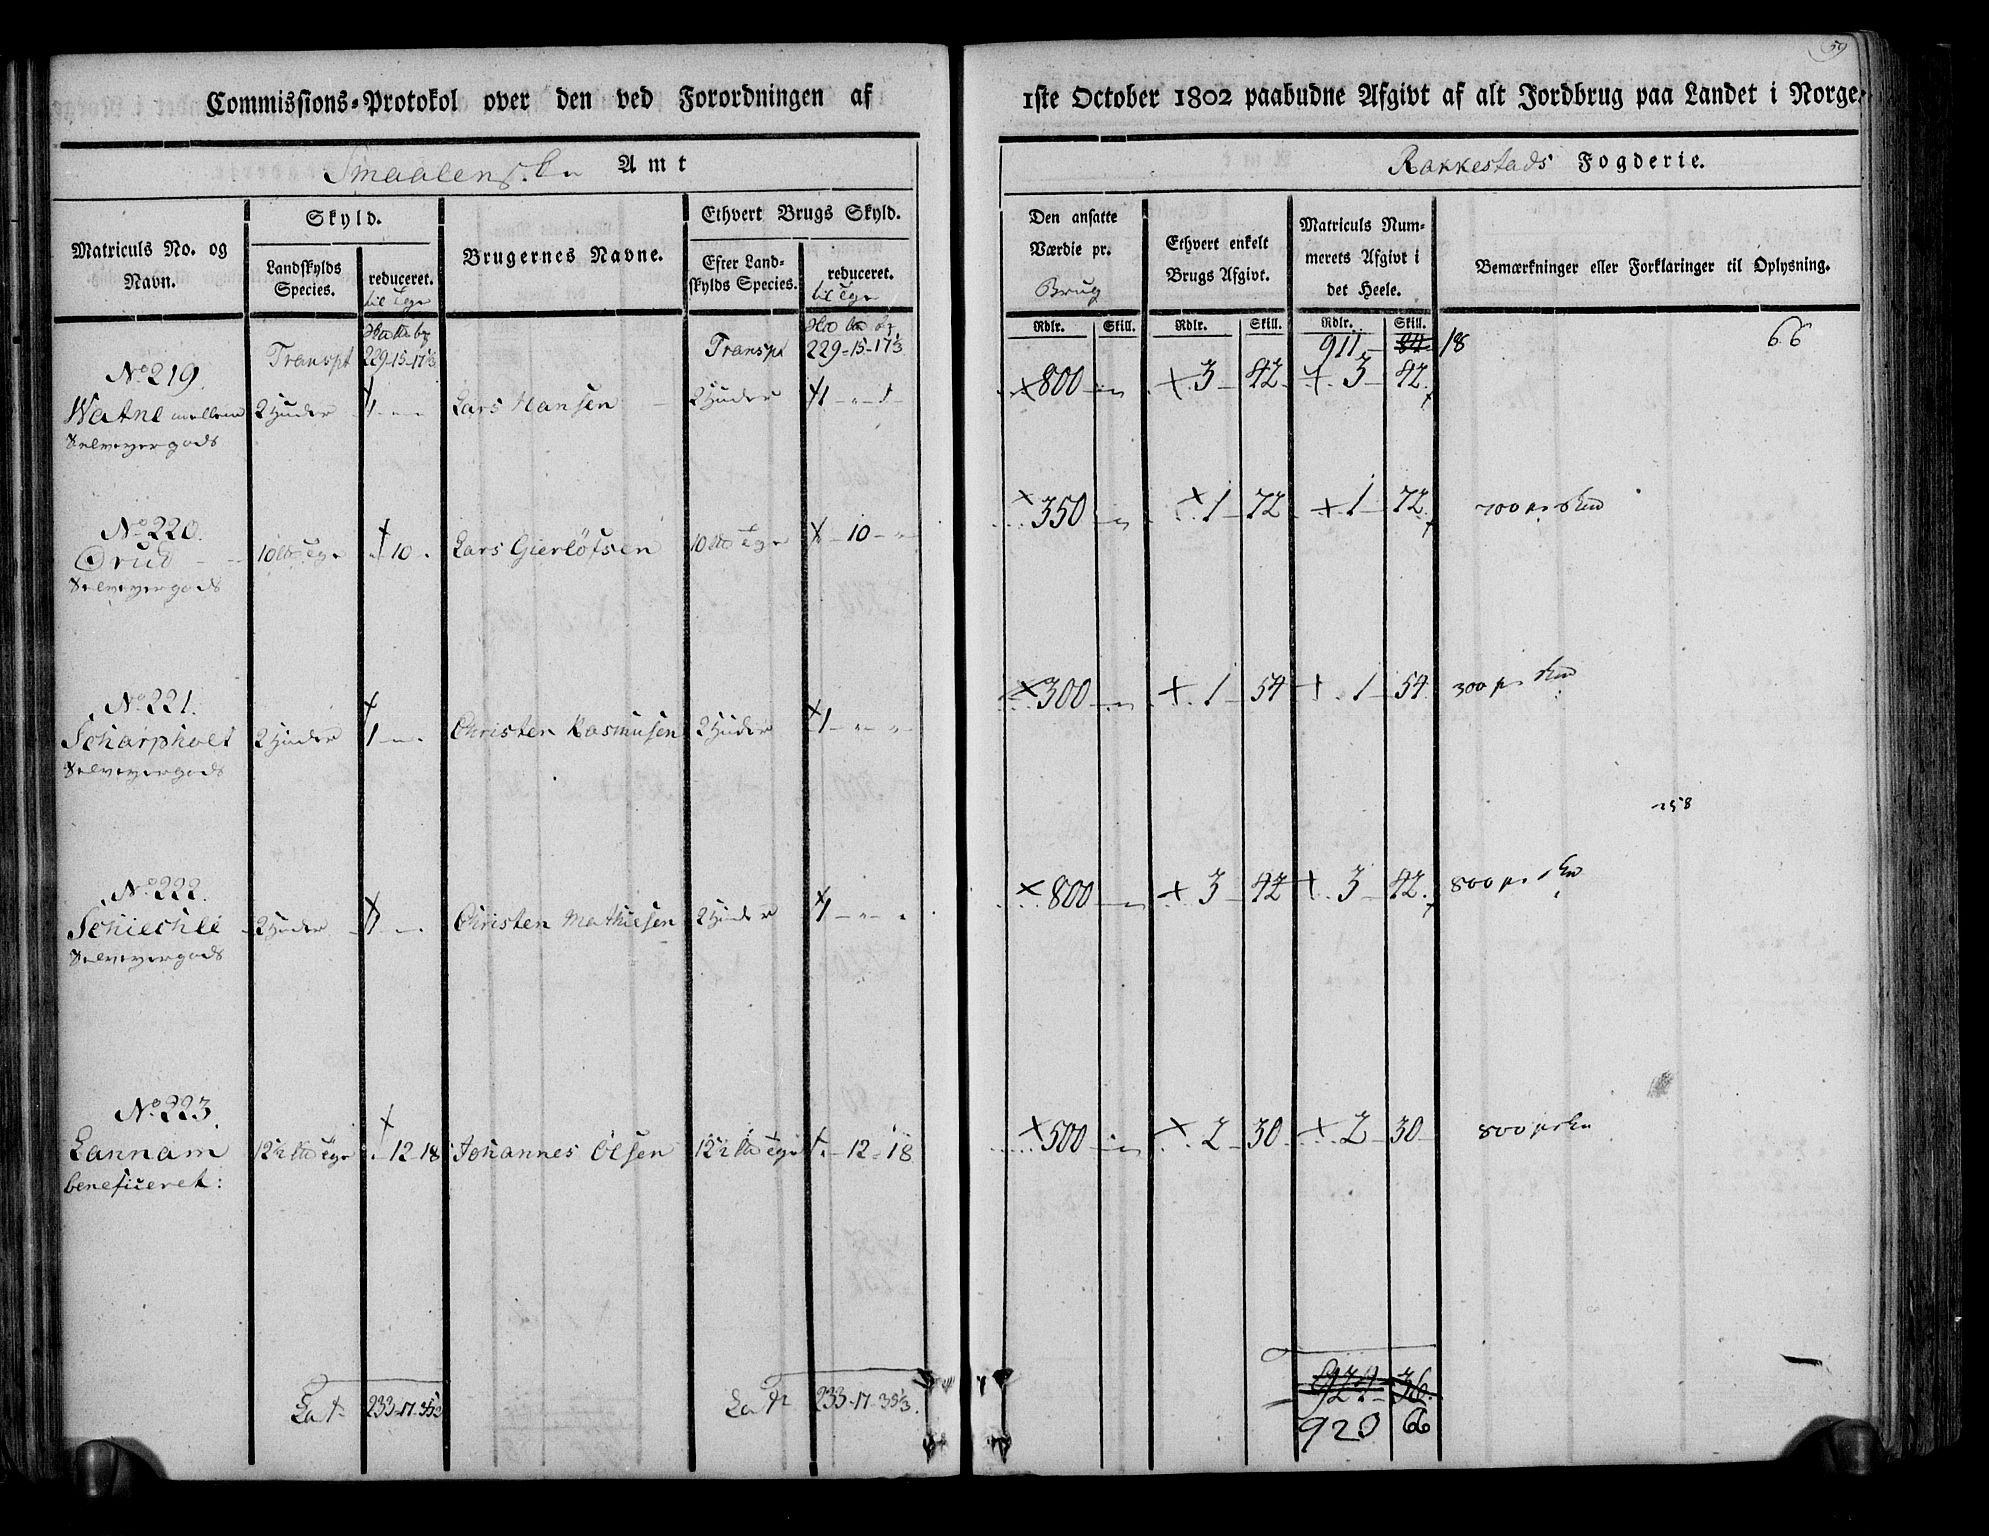 59
Commissions-Protokol over den ved Forordningen af 1ste October 1802 paabudne Afgivt af alt Jordbrug paa Landet i Norge.
Smaalenske Amt
Rakkestads Fogderie.
Matriculs No. og Navn.
Skyld.
Landskylds Species.
reduceret.
til Tge
Brugernes Navne.
Ethvert Brugs Skyld.
Efter Landskylds Species.
reduceret.
til Tge
Den ansatte Værdie pr.
Brug
Ethvert enkelt Brugs Afgivt.
Matriculs Nummerets Afgivt i det Heele.
Bemærkninger eller Forklaringer til Oplysning.
Rdlr. Skill. Rdlr. Skill. Rdlr. Skill.
Transpt 229-15-17⅓ Transpt 229-15-17⅓ 911 84 18 66
No 219.
Watne mellem 2 Huder 1 - - Lars Hansen 2 Huder 1 - - 800 - 3 42 3 42
Selveyergods
No 220.
Ørud 10 Tge 10 Lars Gierløfsen 10 Tge - 10 - 350 - 1 72 1 72 700
Selveyergods
No 221.
Scharpholt 2 Huder 1 - - Christen Rasmusen 2 Huder 1 - - 300 - 1 54 1 54 300
Selveyergods
258
No 222
Schiechle 2 Huder 1 - - Christen Mathiesen 2 Huder 1 - - 800 - 3 42 3 42 800
Selveyergods
No 223.
Lannam 12½ Tge - 12-18 Johannes Olsen 12½ Tge - 12-18 500 - 2 30 2 30 800
beneficeret:
Lat 233-17-35⅓ Lat 233-17-35⅓ 36
923 66